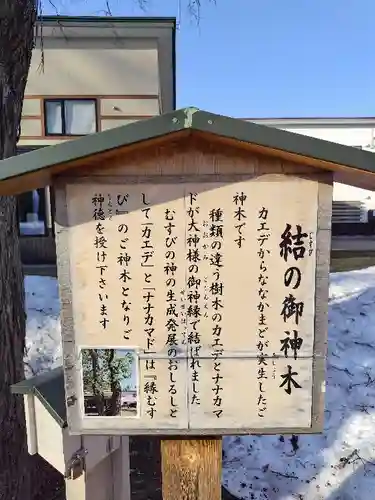 結の御神木
カエデからななかまどが寄生したご
神木です
種類の違う樹木のカエデとナナカマ
ドが大神様の御神縁で結ばれました
むすびの神の生成発展のおしるしと
して「カエデ」と「ナナカマド」は『縁むす
び』のご神木となりご
神徳を授け下さいます